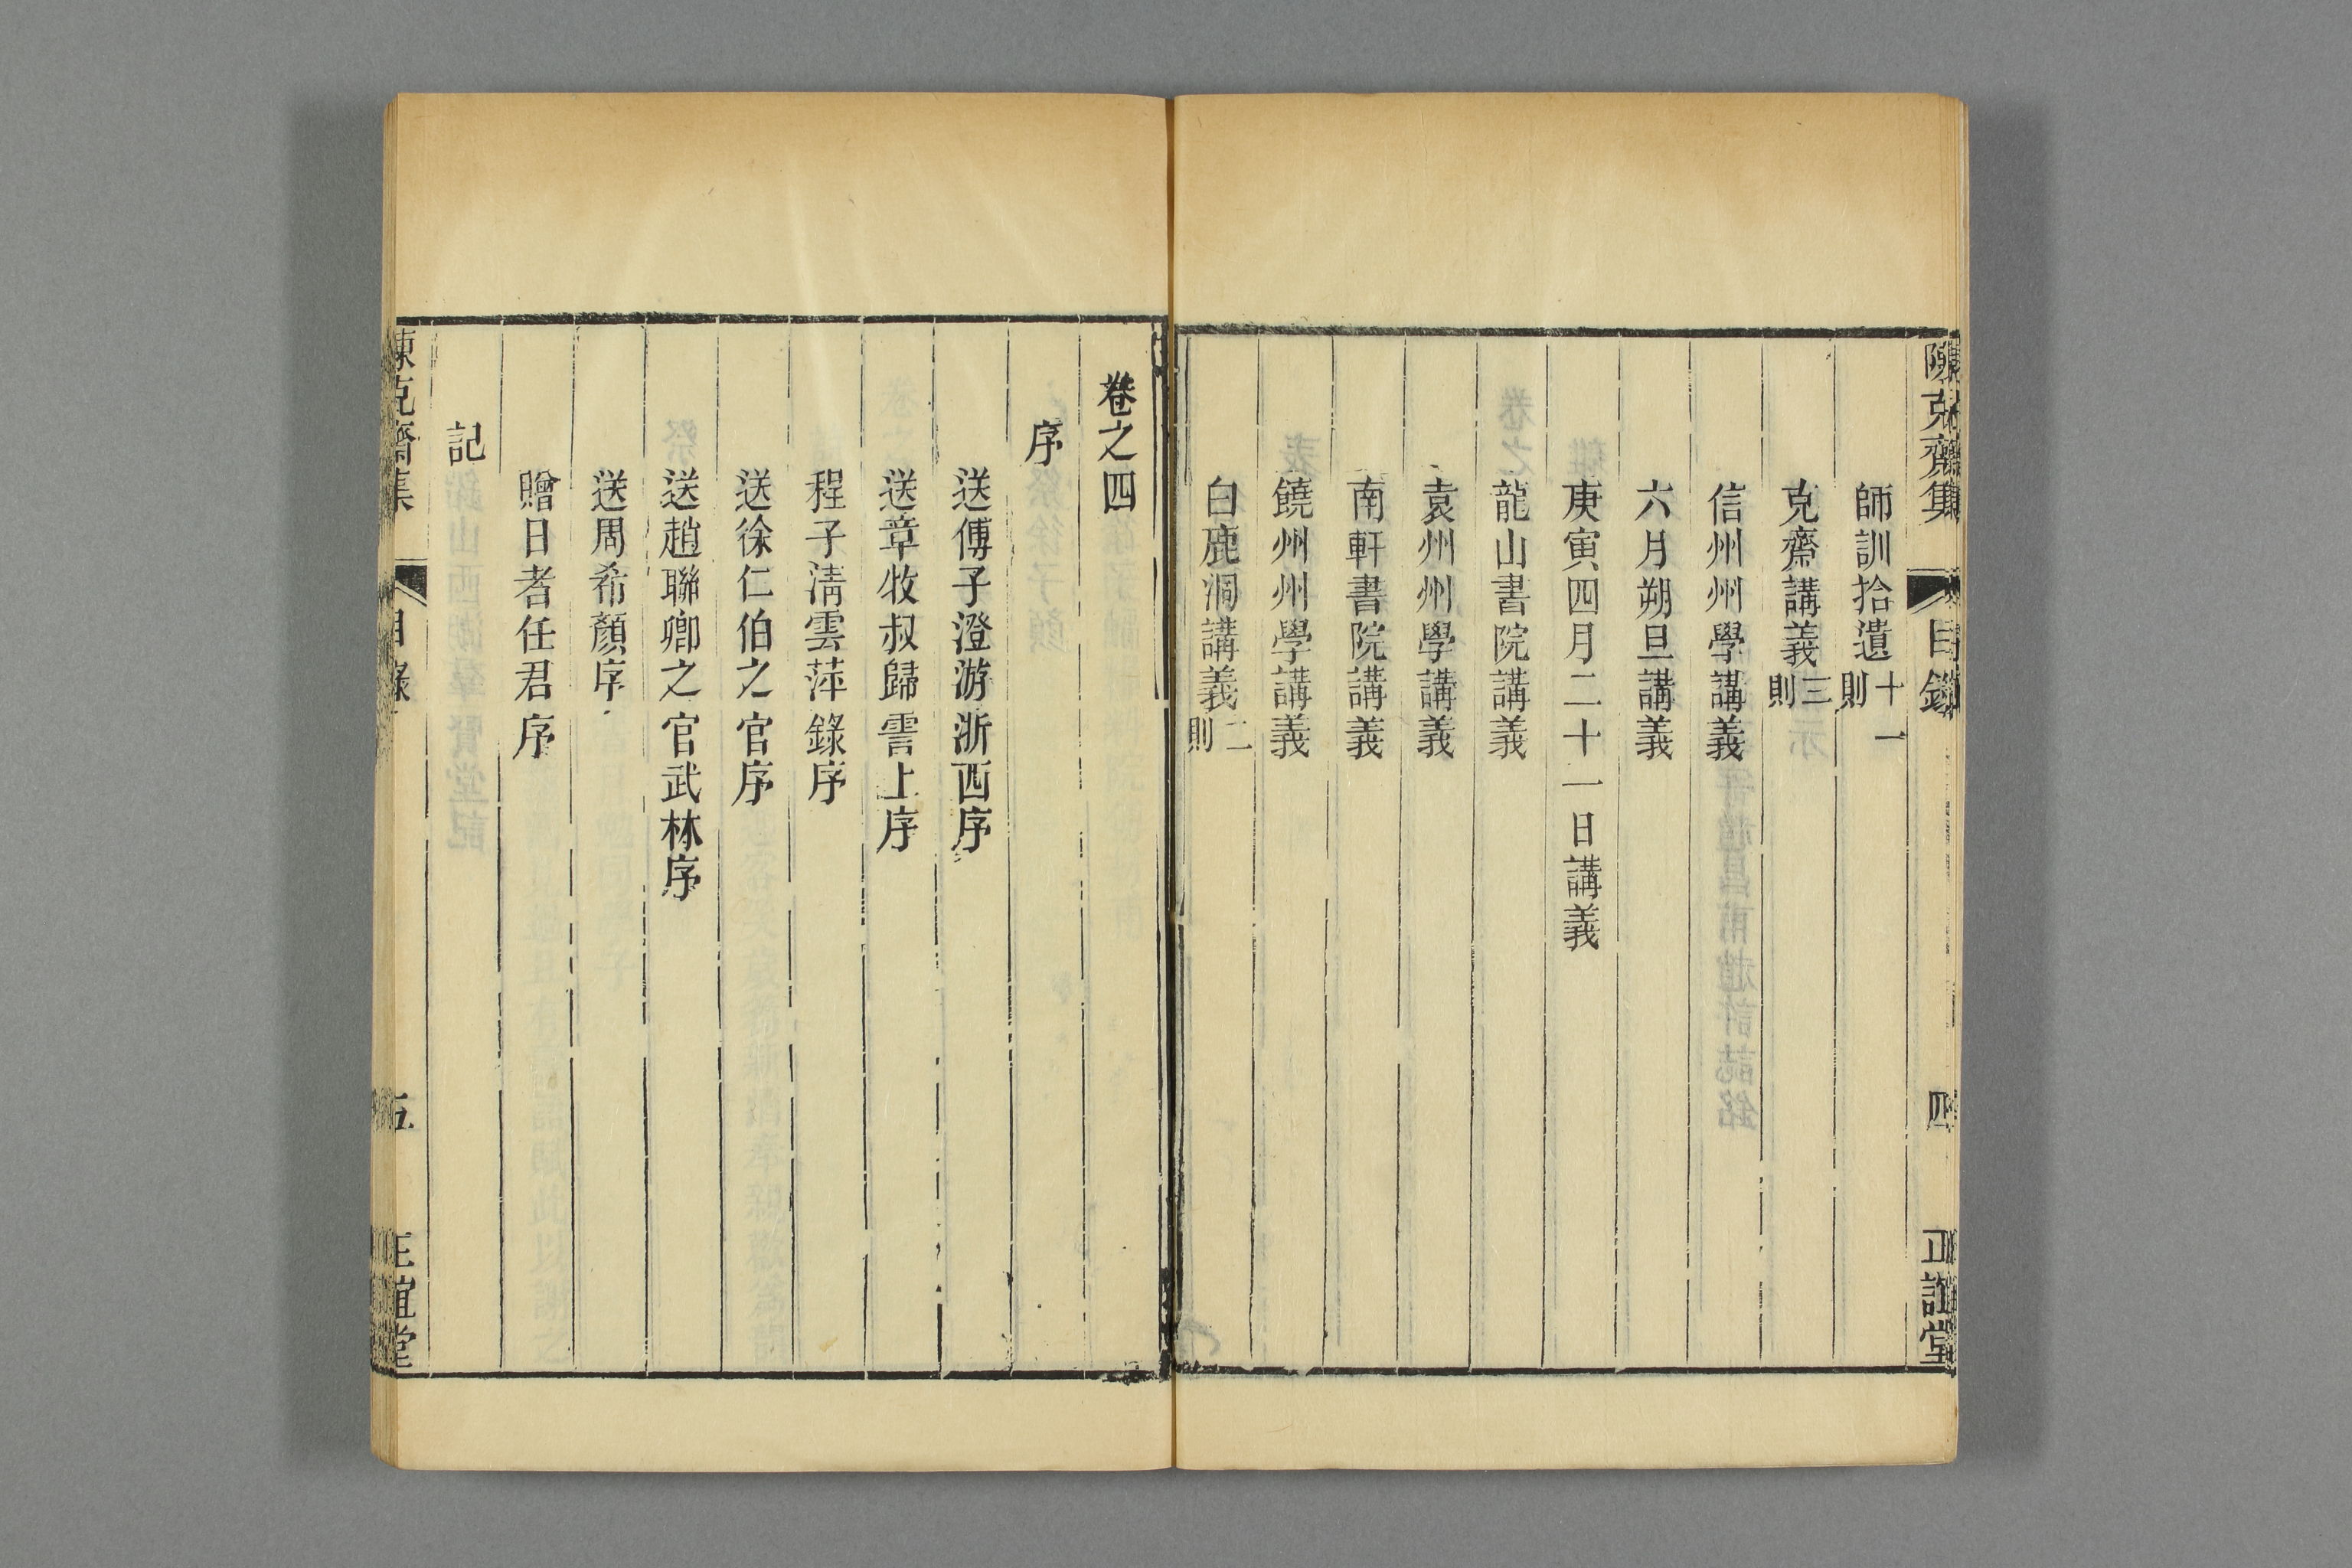 陳克齋集 目錄 四 正誼堂
師訓拾遺十一則
克齋講義三則
信州州學講義
六月朔旦講義
庚寅四月二十一日講義
龍山書院講義
袁州州學講義
南軒書院講義
饒州州學講義
白鹿洞講義二則
卷之四
序
送傅子澄游浙西序
送章牧叔歸霅上序
程子淸雲萍錄序
送徐仁伯之官序
送趙聯卿之官武林序
送周希顏序
贈日者任君序
記
陳克齋集 目錄 五 正誼堂